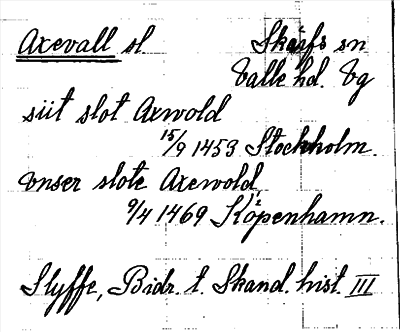 Axevall sl. Skärfs sn
Valle hd. Vg
siit slot Axwold
15/9 1453 Stockholm.
vnser slote Axewold
9/4 1469 Köpenhamn.
Styffe, Bidr. t. Skand. hist. III